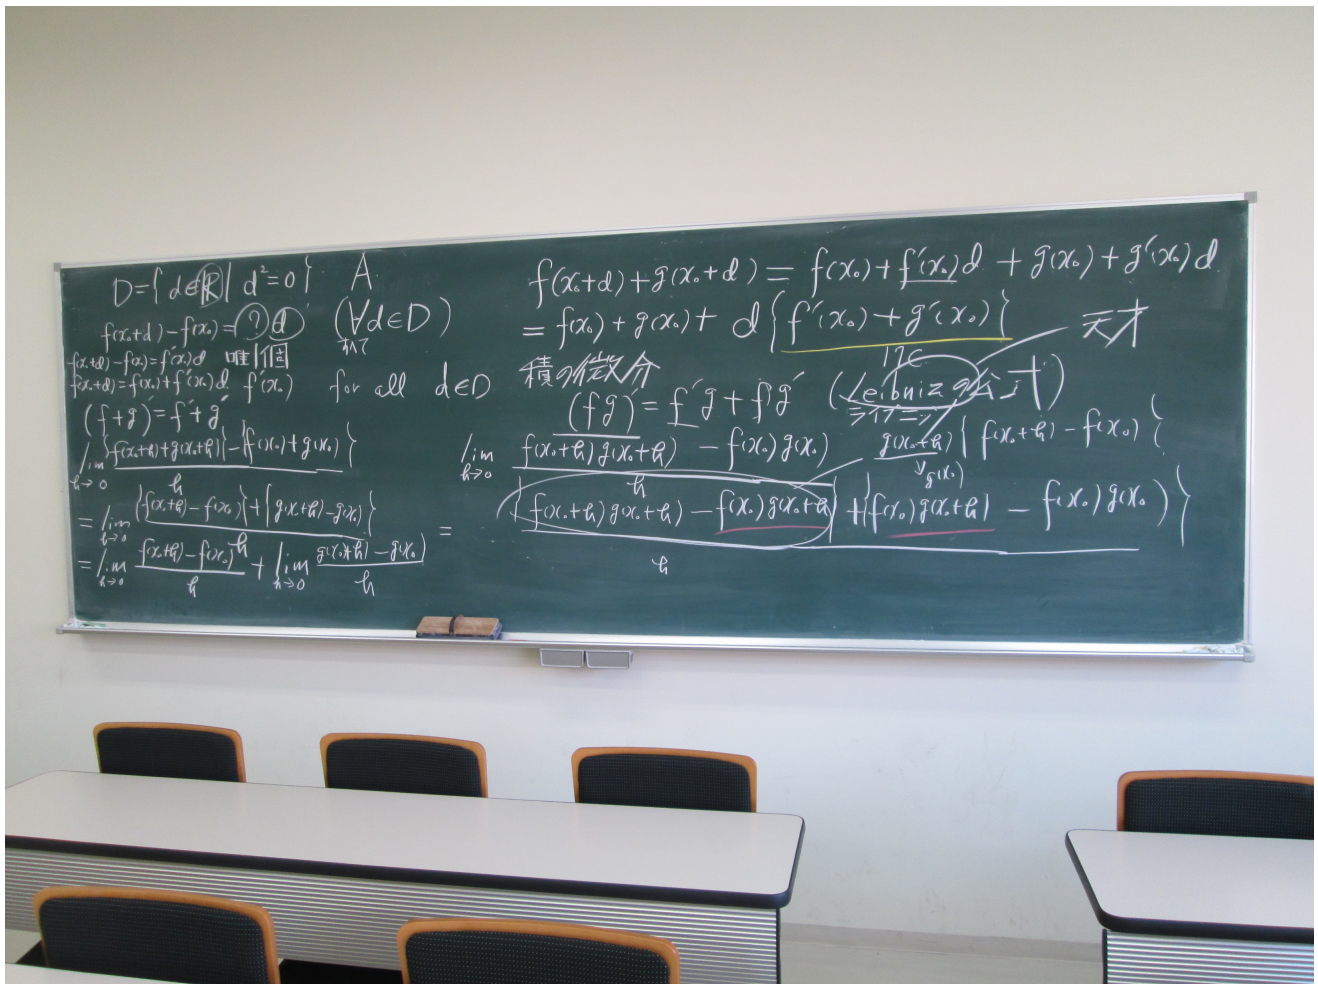 D={d∈ℝ| d²=0}
A
f(x₀+d)−f(x₀)=(?)d
(∀d∈D)
すべて
f(x₀+d)−f(x₀)=f'(x₀)d 唯1個
f(x₀+d)=f(x₀)+f'(x₀)d f'(x₀)
for all d∈D
(f+g)'=f'+g'
lim h→0 {f(x₀+h)+g(x₀+h)}−{f(x₀)+g(x₀)} / h
=lim h→0 {f(x₀+h)−f(x₀)}+{g(x₀+h)−g(x₀)} / h
=lim h→0 f(x₀+h)−f(x₀) / h + lim h→0 g(x₀+h)−g(x₀) / h
f(x₀+d)+g(x₀+d)=f(x₀)+f'(x₀)d+g(x₀)+g'(x₀)d
=f(x₀)+g(x₀)+d{f'(x₀)+g'(x₀)}
天才
17C
積の微分
(fg)'=f'g+fg' (Leibnizの公式)
ライプニッツ
lim h→0 f(x₀+h)g(x₀+h)−f(x₀)g(x₀) / h
g(x₀+h){f(x₀+h)−f(x₀)}
g(x₀)
= {f(x₀+h)g(x₀+h)−f(x₀)g(x₀+h)}+{f(x₀)g(x₀+h)−f(x₀)g(x₀)} / h